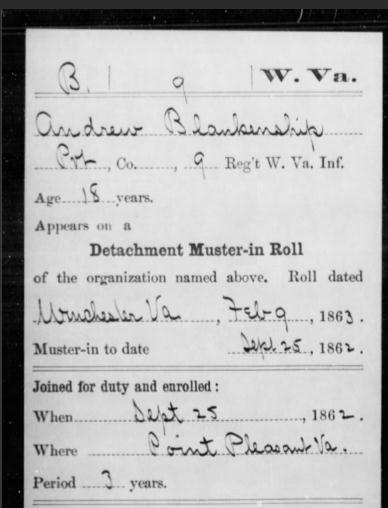 B. | 9 | W. Va.
Andrew Blankenship
Pvt, Co. , 9 Reg't W. Va. Inf.
Age 18 years.
Appears on a
Detachment Muster-in Roll
of the organization named above. Roll dated
Winchester Va , Feb 9 , 1863.
Muster-in to date Sept 25 , 1862.
Joined for duty and enrolled:
When Sept 25 , 1862.
Where Point Pleasant Va.
Period 3 years.